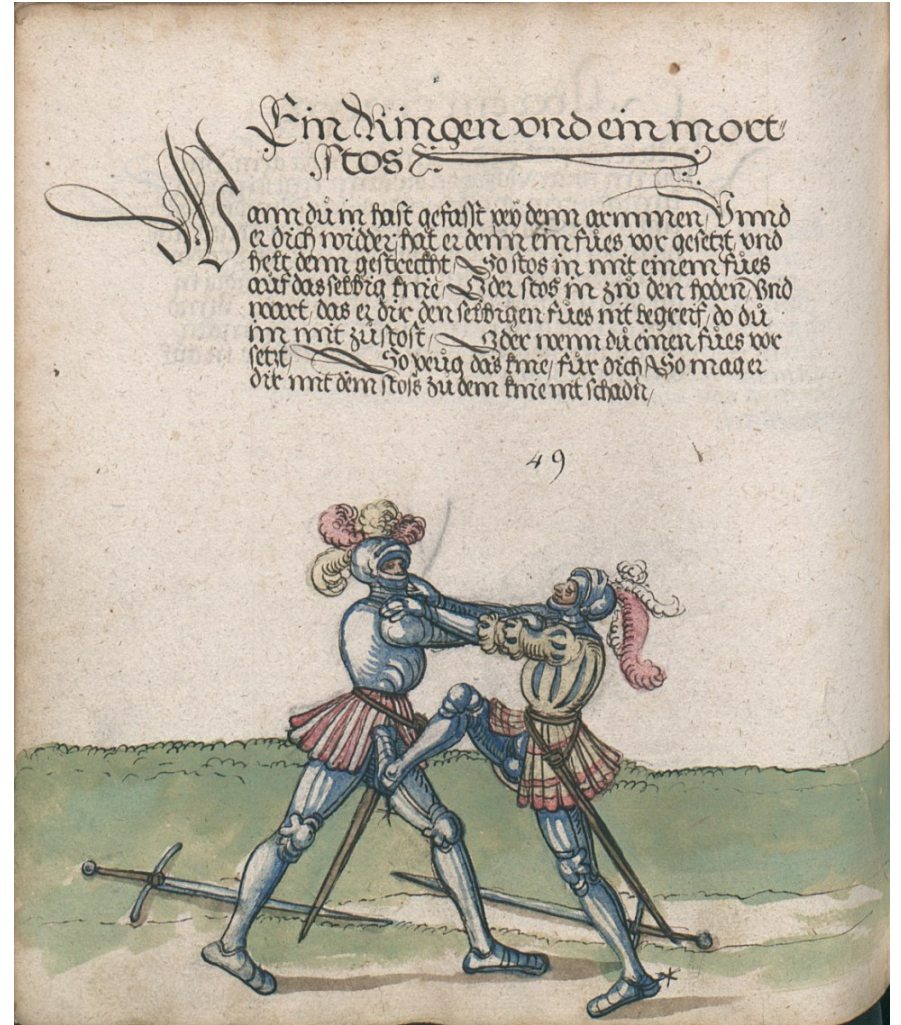 Ein Ringen vnd ein mort
stos
Wann dů in hast gefasst peÿ denn armmen / Vnnd
er dich widder / hat er denn ein fůes vor gesetzt, vnd
helt denn gestreckht / So stos in mit einem fůes
auf das selbig knie / Oder stos in zwo den hoden / Vnd
wart, das er dir den selbigen fůes nit begreif, do dů
im mit zůstost / Oder wenn dů einen fůes vor
setzt / So peůg das knie / für dich / So mag er
dir mit dem stoss zu dem knie nit schadn /
49